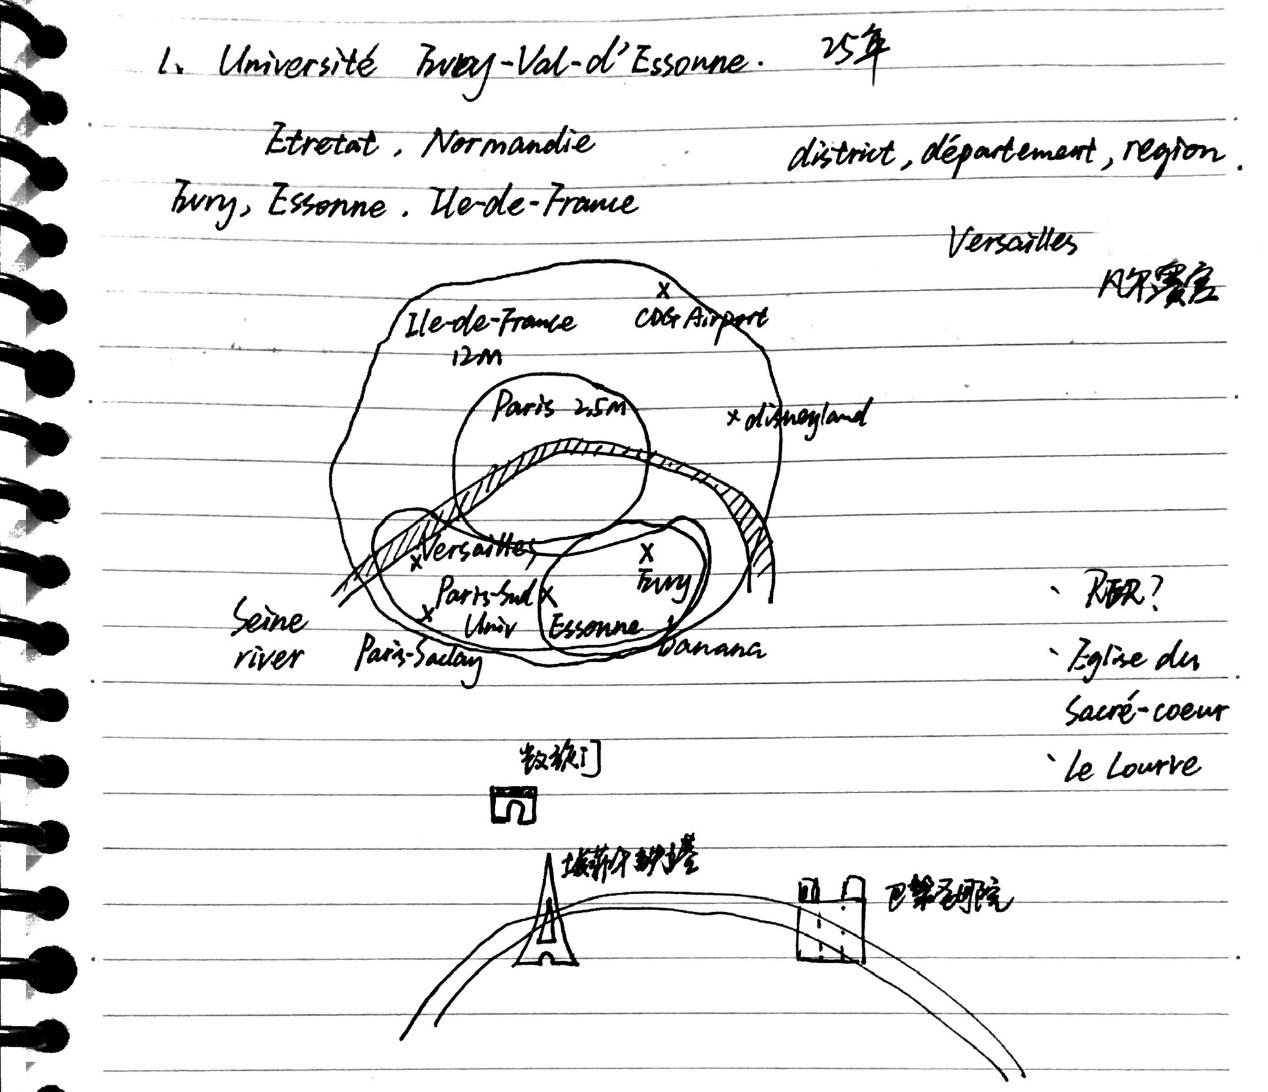 1. Université Evry-Val-d'Essonne. 25年
Etretat, Normandie
district, département, region.
Evry, Essonne. Ile-de-France
Versailles
凡尔赛宫
Ile-de-France
12M
CDG Airport
Paris 2.5M
x disneyland
x Versailles
x Evry
Paris-Sud x
Univ
Essonne
Seine
river
Paris-Saclay
banana
RER?
Eglise du
Sacré-coeur
Le Lourve
埃菲尔铁塔
巴黎圣母院